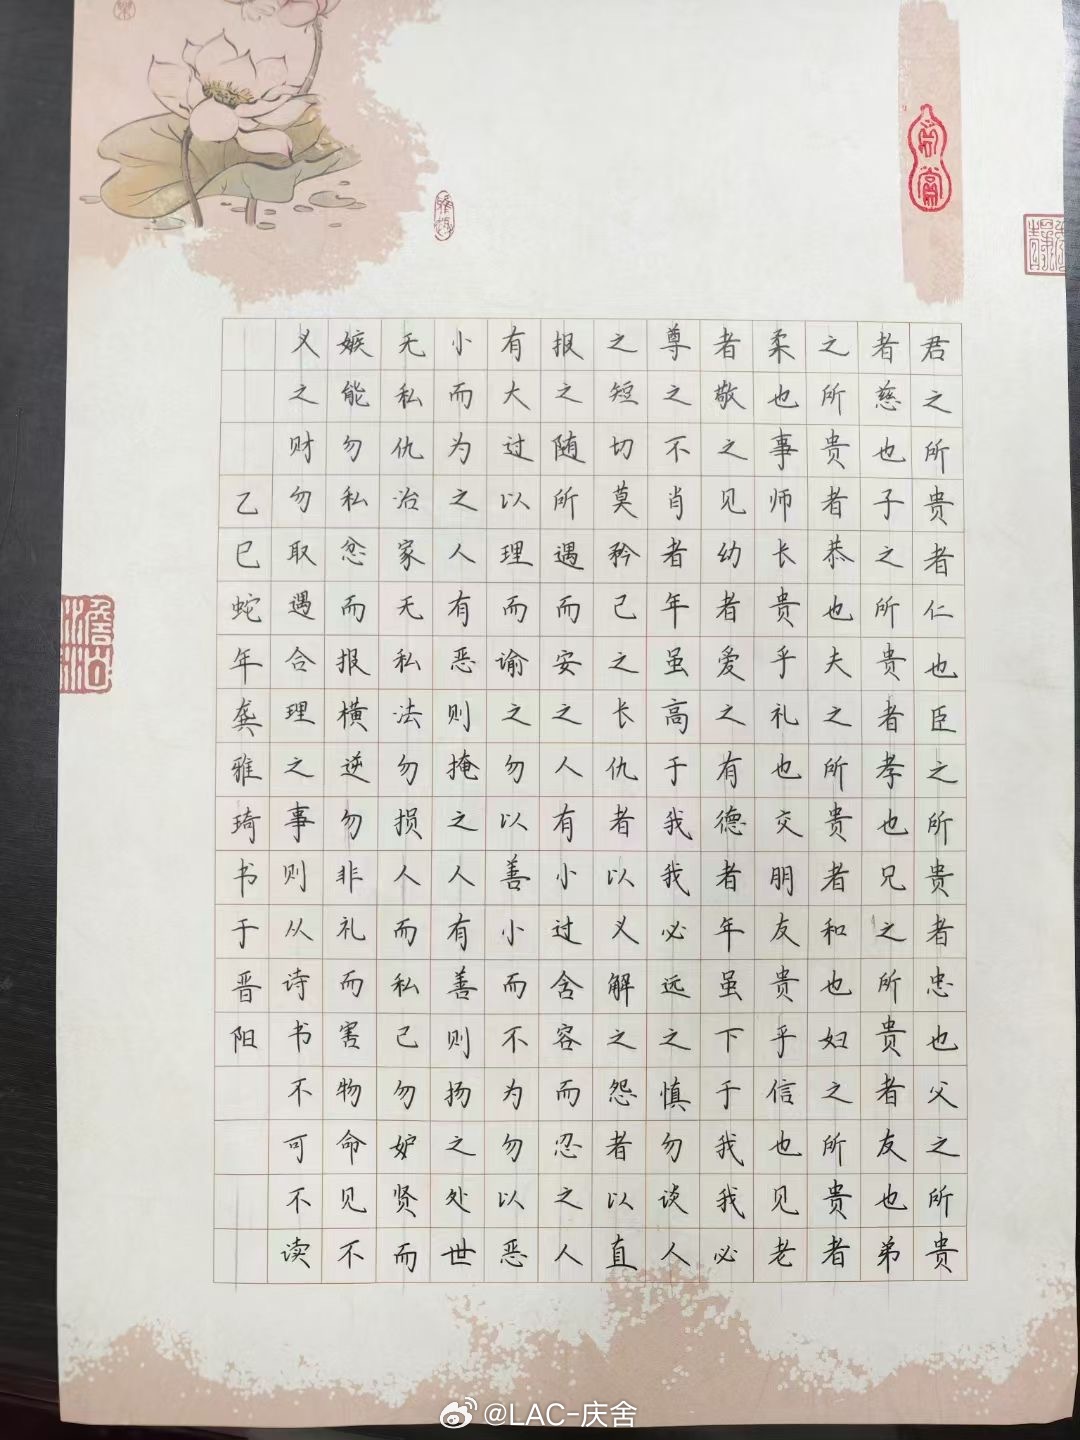 君之所贵者仁也臣之所贵者忠也父之所贵
者慈也子之所贵者孝也兄之所贵者友也弟
之所贵者恭也夫之所贵者和也妇之所贵者
柔也事师长贵乎礼也交朋友贵乎信也见老
者敬之见幼者爱之有德者年虽下于我我必
尊之不肖者年虽高于我我必远之慎勿谈人
之短切莫矜己之长仇者以义解之怨者以直
报之随所遇而安之人有小过含容而忍之人
有大过以理而谕之勿以善小而不为勿以恶
小而为之人有恶则掩之人有善则扬之处世
无私仇治家无私法勿损人而私己勿妒贤而
嫉能勿私忿而报横逆勿非礼而害物命见不
义之财勿取遇合理之事则从诗书不可不读
乙巳蛇年龚雅琦书于晋阳
@LAC-庆舍